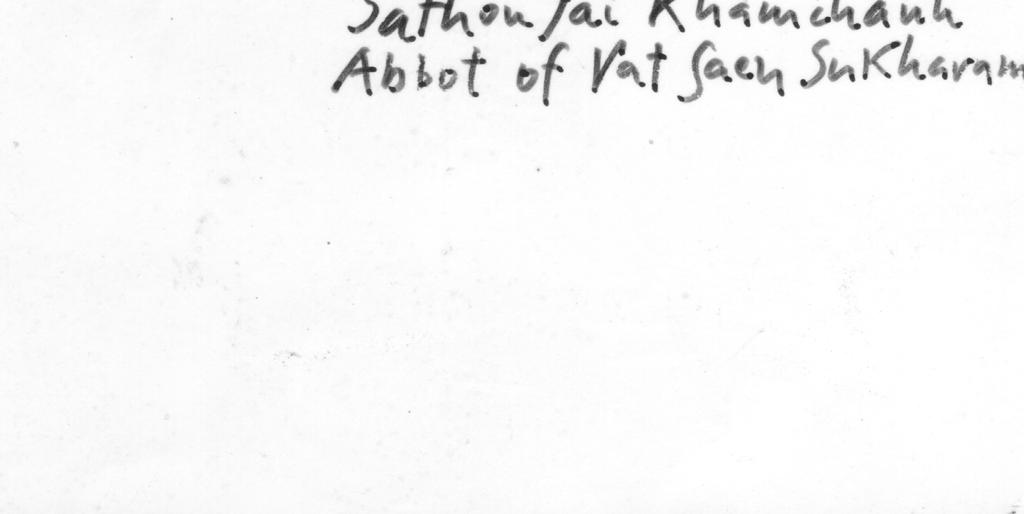 Sathou Jai Khamchanh
Abbot of Vat Saen Sukharam